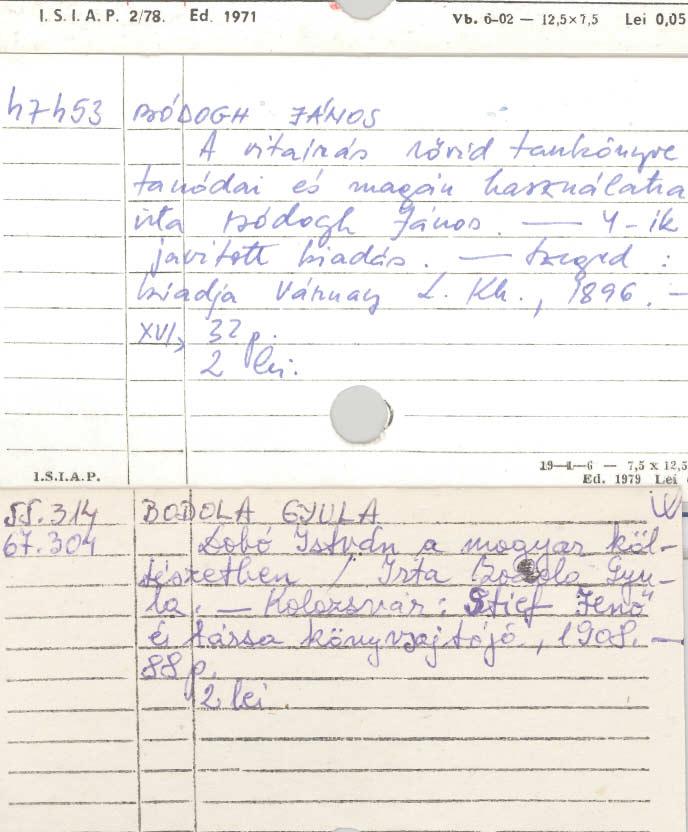 I. S. I. A. P. 2/78. Ed. 1971 Vb. 6-02 — 12,5×7,5 Lei 0,05
47453 BÓDOGH JÁNOS
A vitaírás rövid tankönyve
tanódai és magán használatra
irta Bódogh János. — 4-ik
javitott kiadás. — Szeged :
kiadja Várnay L. Kh., 1896. —
XVI, 32 p.
2 lei.
I.S.I.A.P. 19—4—6 — 7,5 x 12,5
Ed. 1979 Lei
55.314 BODOLA GYULA
67.304 Dobó István a magyar köl-
tészetben / Irta Bodola Gyu-
la. — Kolozsvár : Stief Jenő
és társa könyvsajtójá, 1908. —
88 p.
2 lei.